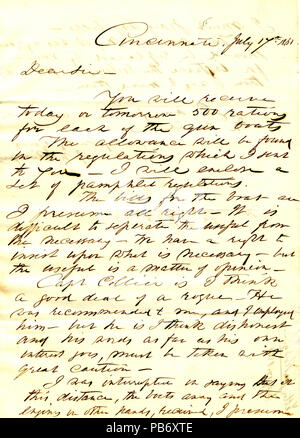 Cincinnati July 17th 1861
Dear Sir -
You will receive
today or tomorrow 500 rations
for each of the gun boats
The allowance will be found
in the regulations which I sent
to you - I will enclose a
set of pamphlet regulations.
The bids for the boat are
I presume all right - It is
difficult to seperate the useful from
the necessary - We have a right to
insist upon what is necessary - but
the useful is a matter of opinion -
Capt Collier is I think
a good deal of a rogue - He
was recommended to me, and I employed
him - but he is I think dishonest
and his ands as far as his own
interest goes, must be taken with
great caution -
I was interrupted in saying that at
this, distance, the boats away and the
engines in other hands, received, I presume
alamy
alamy
Image ID: PB6XTE
www.alamy.com